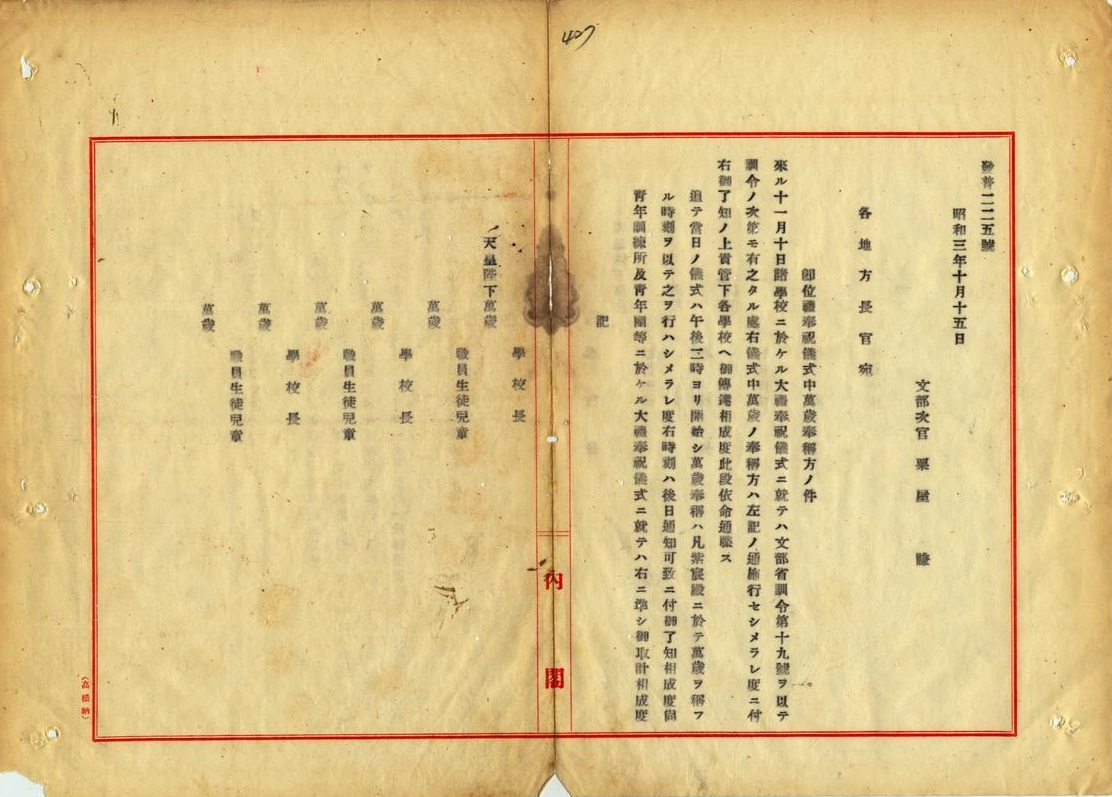 407
發普二二五號
昭和三年十月十五日
文部次官 粟屋 謙
各地方長官宛
卽位禮奉祝儀式中萬歲奉稱方ノ件
來ル十一月十日諸學校ニ於ケル大禮奉祝儀式ニ就テハ文部省訓令第十九號ヲ以テ
訓令ノ次第モ有之タル處右儀式中萬歲ノ奉稱方ハ左記ノ通施行セシメラレ度ニ付
右御了知ノ上貴管下各學校ヘ御傳達相成度此段依命通牒ス
追テ當日ノ儀式ハ午後二時ヨリ開始シ萬歲奉稱ハ凡紫宸殿ニ於テ萬歲ヲ稱フ
ル時刻ヲ以テ之ヲ行ハシメラレ度右時刻ハ後日通知可致ニ付御了知相成度尙
靑年訓練所及靑年團等ニ於ケル大禮奉祝儀式ニ就テハ右ニ準シ御取計相成度
記
學校長
天皇陛下萬歲
職員生徒兒童
萬歲
學校長
萬歲
職員生徒兒童
萬歲
學校長
萬歲
職員生徒兒童
萬歲
內閣
(高橋納)